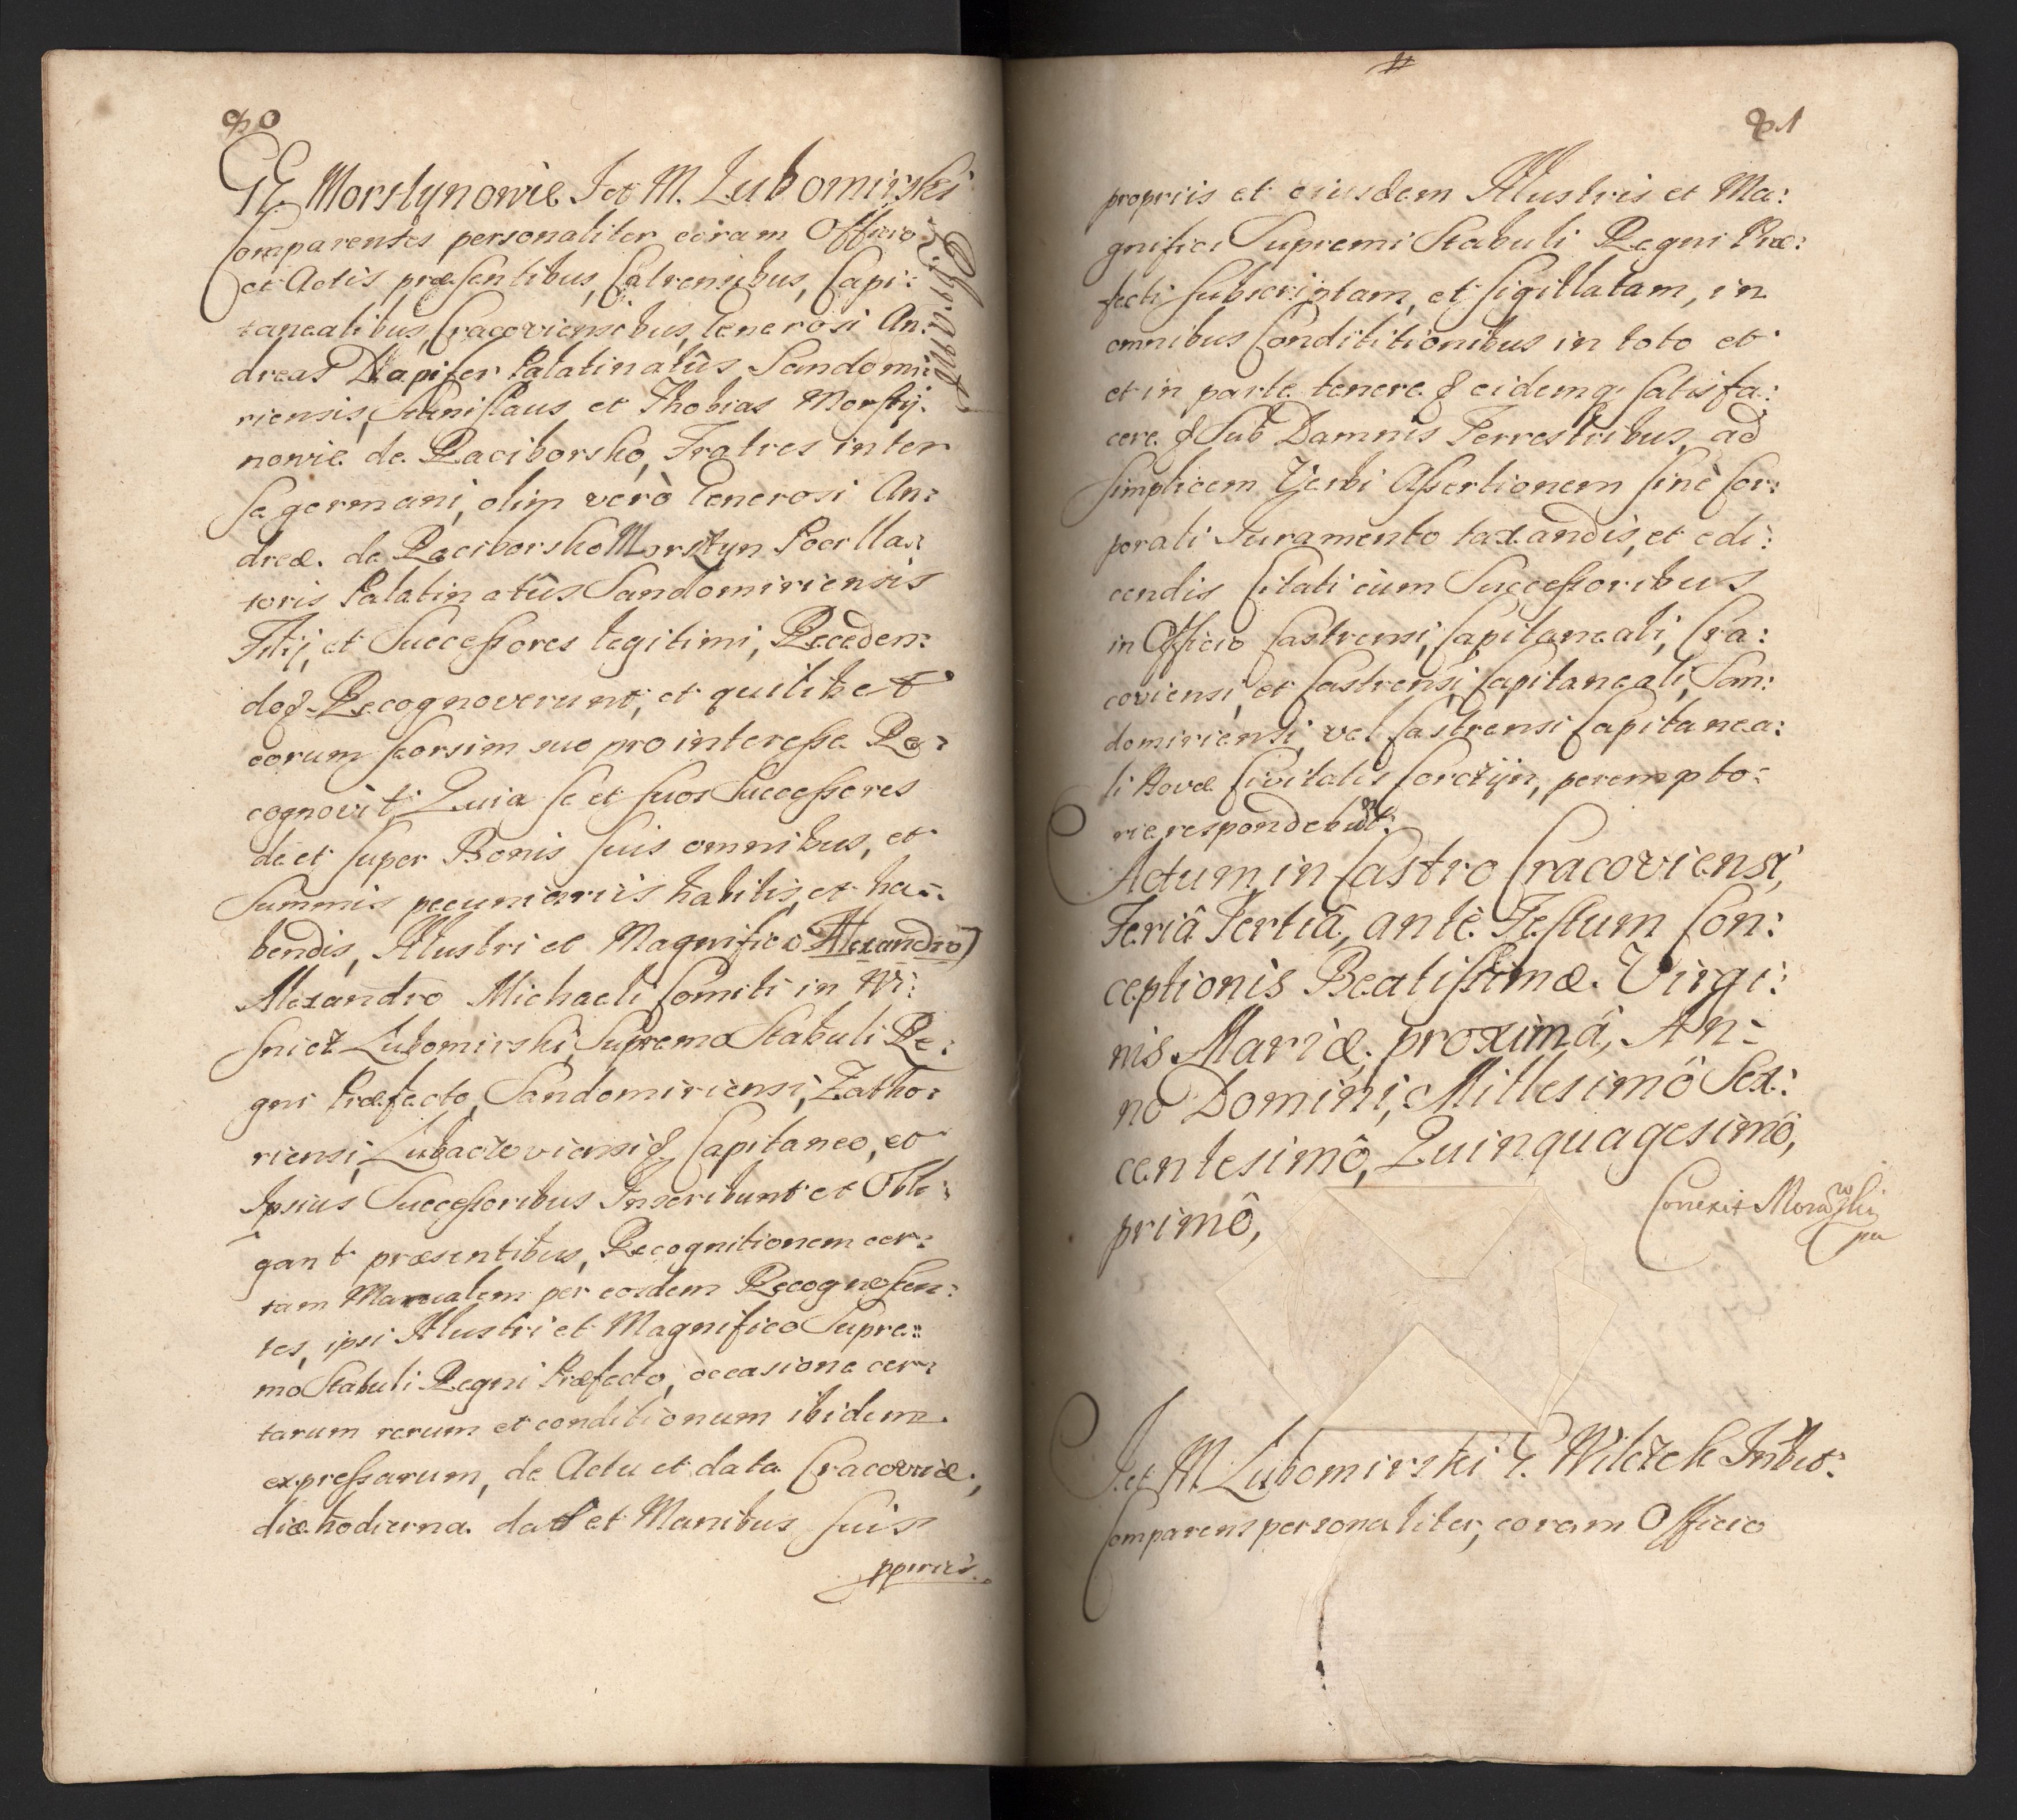 80
GG. Morstynowie I et M. Lubomirski
Comparentes personaliter coram Officio
et Actis præsentibus, Castrensibus, Capi:
taneatibus, Cracoviensibus, Generosi An:
dreas Dapifer Palatinatûs Sandomi:
riensis, Stanislaus et Thobias Morstÿ:
nowie de Raciborsko, Fratres inter
se germani, olim verò Generosi An:
dreæ de Raciborsko Morstyn Pocilla:
toris Palatinatûs Sandomiriensis
Filij, et Successores legitimi, Receden:
do & Recognoverunt, et quilibet
eorum seorsim suo pro interesse Re:
cognovit, Quia se et suos Successores
de et super Bonis suis omnibus, et
Summis pecuniariis habitis, et ha:
bendis, Illustri et Magnifico Alexandro
Alexandro Michaeli Comiti in Wi:
snicz Lubomirski, Supremo Stabuli Re:
gni Præfecto, Sandomiriensi, Zatho:
riensi, Lubaczoviensi & Capitaneo, et
Ipsius Successoribus Inscribunt et Obli:
gant præsentibus, Recognitionem cer:
tam Manualem per eosdem Recognoscen:
tes, ipsi Illustri et Magnifico Supre:
mo Stabuli Regni Præfecto, occasione cer:
tarum rerum et conditionum ibidem
expressarum, de Actu et data Cracoviæ,
die hodierna dat et Manibus suis
ppriis.
81
propriis et eiusdem Illustris et Ma:
gnifici Supremi Stabuli Regni Præ:
fecti subscriptam, et sigillatam, in
omnibus Condititionibus in toto et
et in parte tenere & eidemq. satisfa:
cere & Sub Damnis Terrestribus, ad
simplicem Verbi Assertionem sinè Cor:
porali Juramento taxandis, et edi:
cendis Citati cùm Successoribus
in Officio Castrensi, Capitaneali, Cra:
coviensi, et Castrensi Capitaneali, San:
domiriensi, vel Castrensi Capitanea:
li Novæ Civitatis Corczÿn, perempto:
rie respondebunt.
Actum in Castro Cracoviensi,
Feriâ Tertiâ, antè Festum Con:
ceptionis Beatissimæ Virgi:
nis Mariæ proximâ, An:
no Domini, Millesimô Sex:
centesimô, Quinquagesimô,
primô,
I. et M Lubomirski G. Wilczek Inbit:
Comparens personaliter, coram Officio